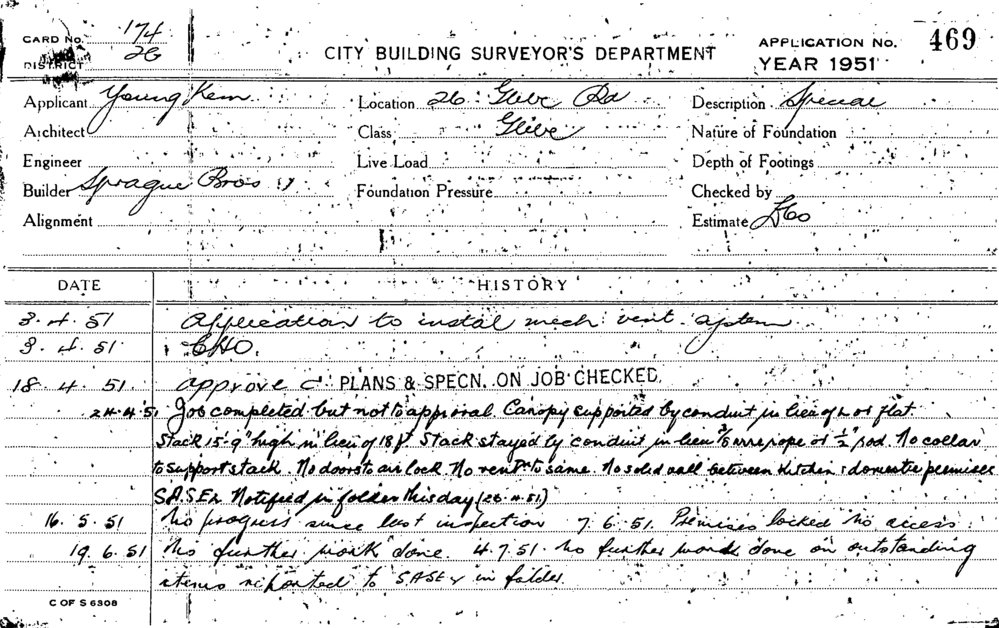 CARD No. 174
DISTRICT 26
CITY BUILDING SURVEYOR'S DEPARTMENT
APPLICATION No. 469
YEAR 1951
Applicant Young Kem Location 26 Glebe Rd Description Special
Architect Class Glebe Nature of Foundation
Engineer Live Load Depth of Footings
Builder Sprague Bros Foundation Pressure Checked by
Alignment Estimate £60
DATE HISTORY
3.4.51 Application to instal mech. vent. system
3.4.51 CHO.
18.4.51 approve PLANS & SPECN. ON JOB CHECKED
24.4.51 Job completed but not to approval. Canopy supported by conduit in lieu of L or flat
Stack 15'-9" high in lieu of 18ft Stack stayed by conduit in lieu wire rope or ½" rod. No collar
to support stack. No doors to air lock. No ventn to same. No solid wall between kitchen & domestic premises
Notified in folder this day (26.4.51)
16.5.51 No progress since last inspection 7.6.51. Premises locked no access.
19.6.51 No further work done. 4.7.51. No further work done on outstanding
items reported to in folder.
C OF S 6308